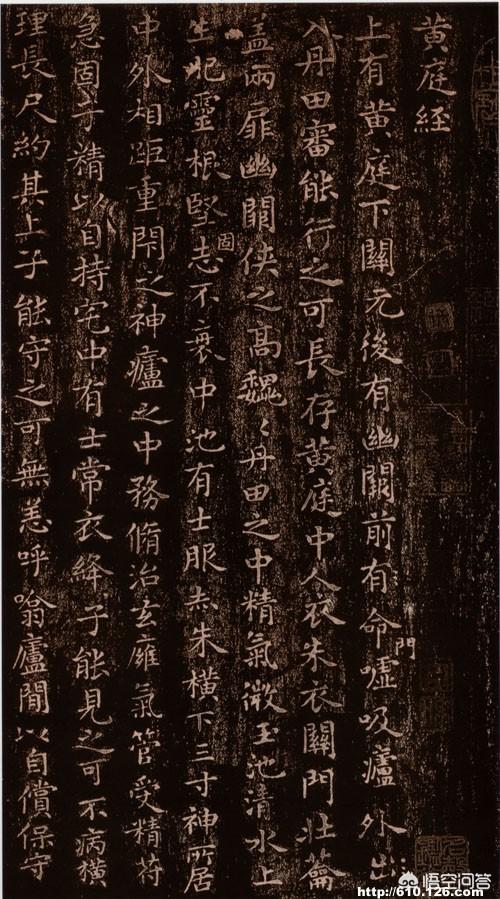 黄庭經
上有黄庭下關元後有幽闕前有命門嘘吸廬外出
入丹田審能行之可長存黄庭中人衣朱衣關門壯籥
盖兩扉幽關侠之髙魏〻丹田之中精氣微玉池清水上
生肥靈根堅固志不衰中池有士服赤朱横下三寸神所居
中外相距重閇之神廬之中務脩治玄廱氣管受精苻
急固子精以自持宅中有士常衣絳子能見之可不病橫
理長尺約其上子能守之可無恙呼噏廬閒以自償保守
悟空问答
http://610.126.com